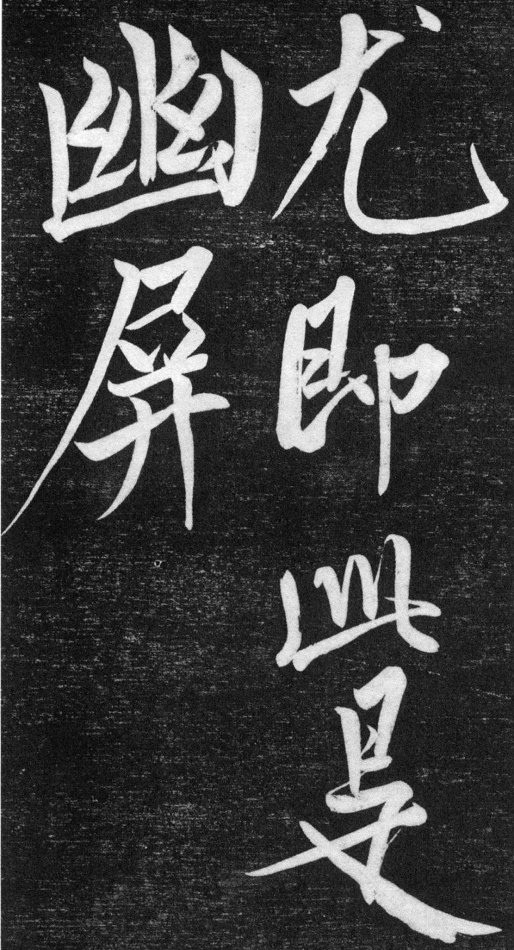 尤即此是
幽屏